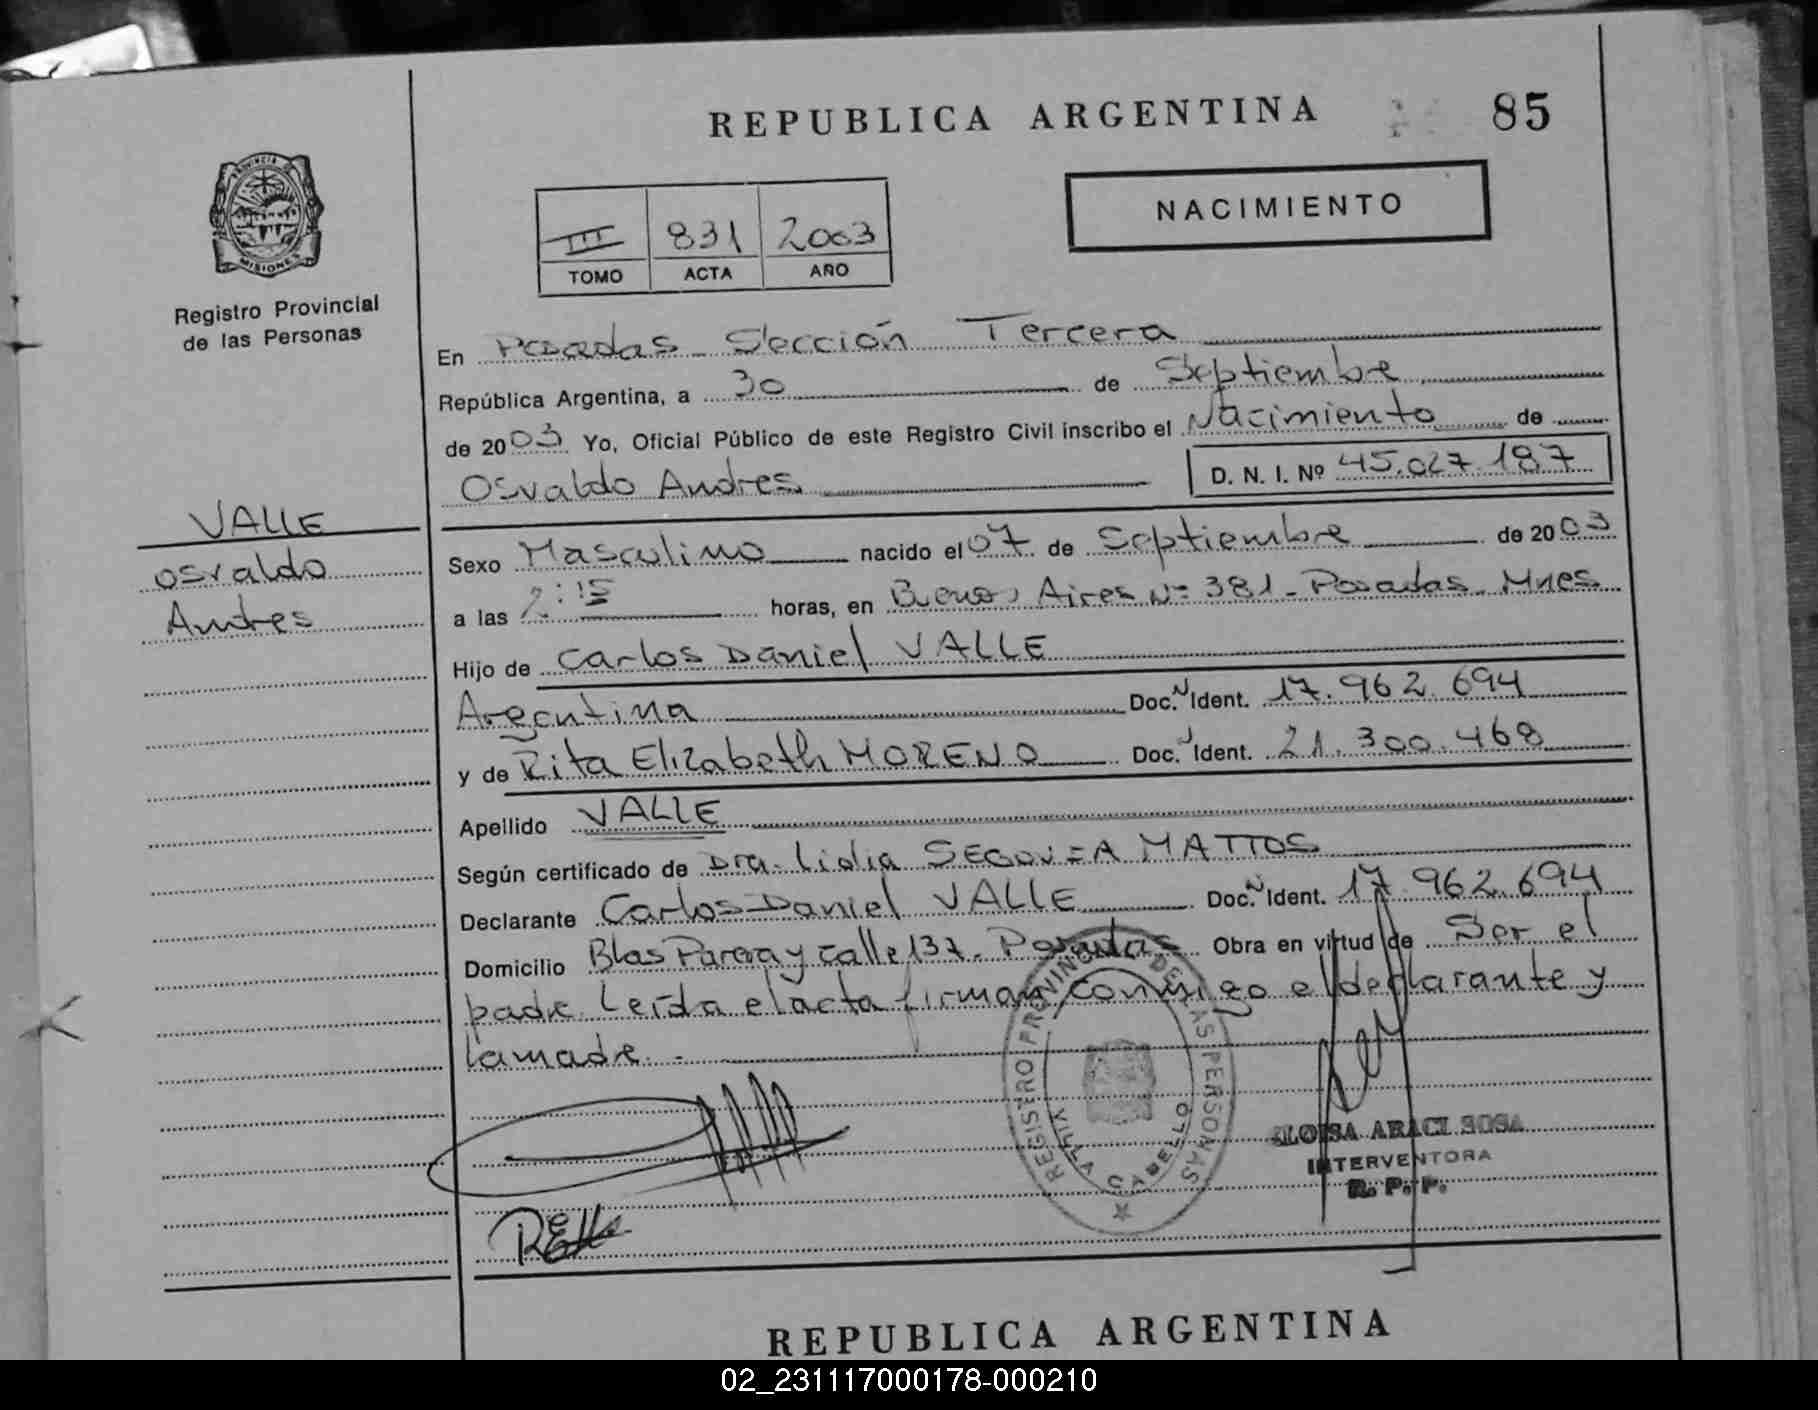 REPUBLICA ARGENTINA
85
PROVINCIA
MISIONES
Registro Provincial
de las Personas
NACIMIENTO
III 831 2003
TOMO ACTA AÑO
En Posadas Sección Tercera
República Argentina, a 30 de Septiembre
de 2003 Yo, Oficial Público de este Registro Civil inscribo el Nacimiento de
Osvaldo Andres D. N. I. Nº 45.027.187
VALLE
Osvaldo
Andres
Sexo Masculino nacido el 07 de Septiembre de 2003
a las 2:15 horas, en Buenos Aires Nº 381 - Posadas - Mnes
Hijo de Carlos Daniel VALLE
Argentina Doc. N Ident. 17.962.694
y de Rita Elizabeth MORENO Doc. N Ident. 21.300.468
Apellido VALLE
Según certificado de Dra. Lidia SEGOVIA MATTOS
Declarante Carlos Daniel VALLE Doc. N Ident. 17.962.694
Domicilio Blas Parera y calle 137. Posadas Obra en virtud de Ser el
padre. Leída el acta firman conmigo el declarante y
la madre. -
REGISTRO PROVINCIAL DE LAS PERSONAS
VILLA CABELLO
ELOISA ARACI SOSA
INTERVENTORA
R. P. P.
REPUBLICA ARGENTINA
02_231117000178-000210